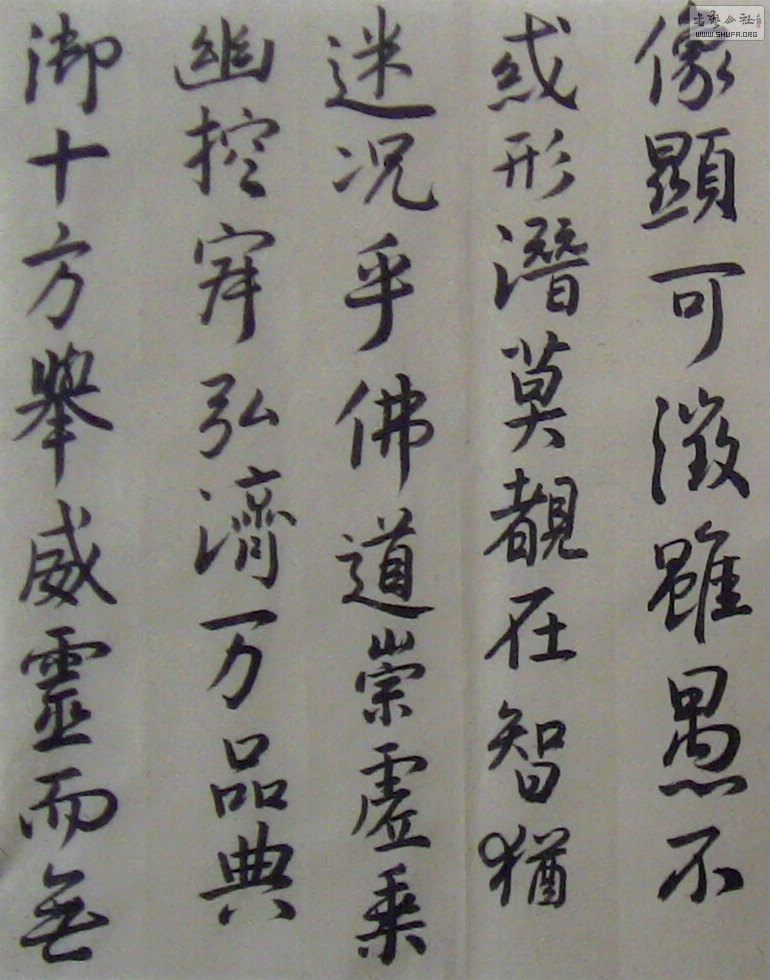 像顯可徵雖愚不
惑形潛莫覩在智猶
迷况乎佛道崇虛乘
幽控寂弘濟万品典
御十方舉威靈而無
書法公社
WWW.SHUFA.ORG